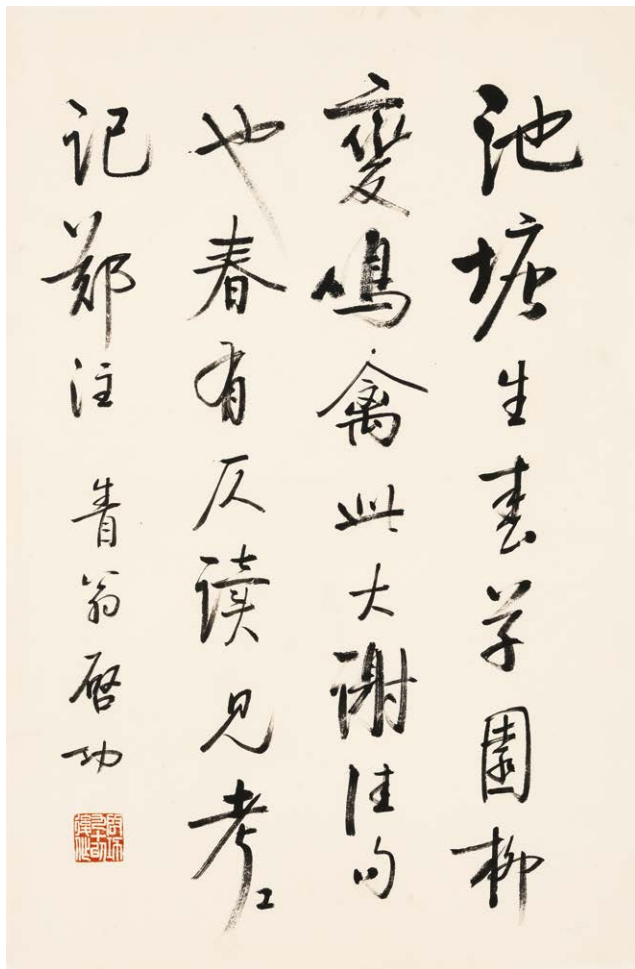 池塘生春草園柳
變鳴禽此大謝佳句
也春有仄讀見考工
記鄭注 眚翁启功